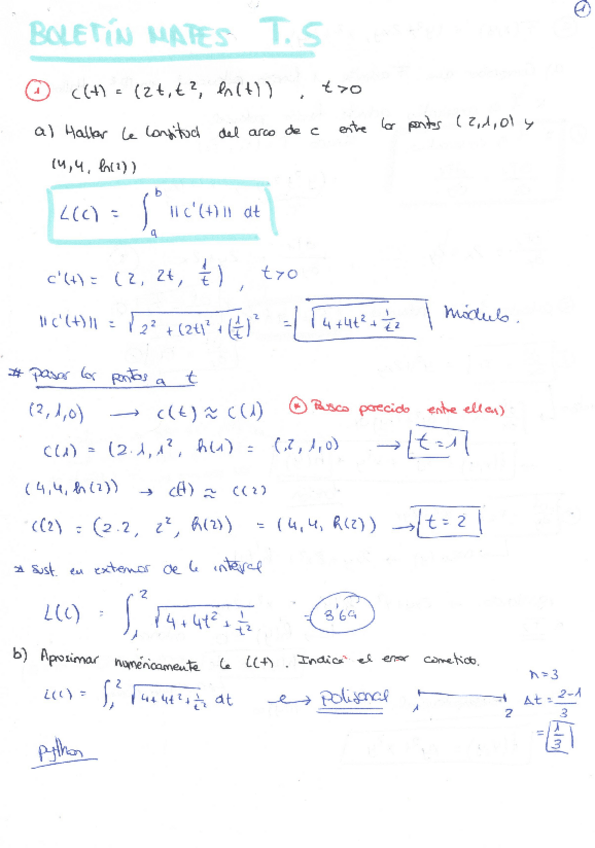 1
BOLETÍN MATES T.5
1 c(t) = (2t, t², ln(t)), t>0
a) Hallar la longitud del arco de c entre los puntos (2,1,0) y
(4,4, ln(2))
L(c) = ∫_a^b ||c'(t)|| dt
c'(t) = (2, 2t, 1/t), t>0
||c'(t)|| = √(2² + (2t)² + (1/t)²) = √(4+4t²+1/t²) Módulo.
* pasar los puntos a t
(2,1,0) → c(t) ≈ c(1) * Busco parecido entre ell(os)
c(1) = (2·1, 1², ln(1) = (2,1,0) → t=1
(4,4, ln(2)) → c(t) ≈ c(2)
c(2) = (2·2, 2², ln(2)) = (4,4, ln(2)) → t=2
* Sust. en extremos de la integral
L(c) = ∫_1^2 √(4+4t²+1/t²) = 3'64
b) Aproximar numéricamente la L(t). Indica el error cometido.
L(c) = ∫_1^2 √(4+4t²+1/t²) dt → poligonal 1 2 n=3 Δt = (2-1)/3 = 1/3
python